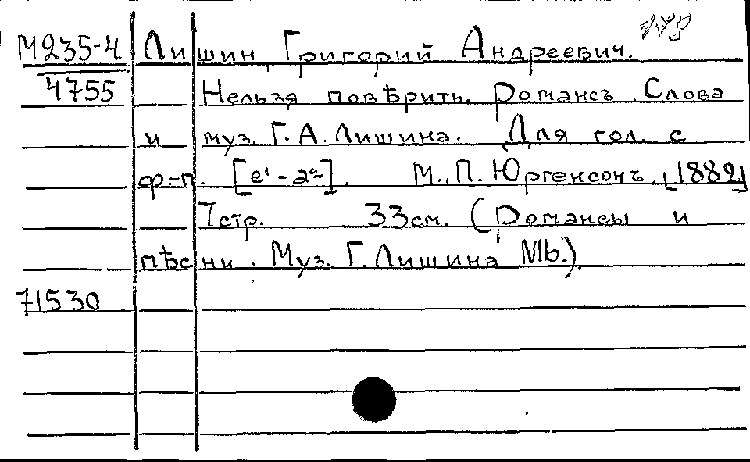 М235-4 Лишин, Григорий Андреевич.
4755 Нельзя повѣрить. Романсъ. Слова
и муз. Г. А. Лишина. Для гол. с
ф-п. [e¹-a²]. М., П. Юргенсонъ, [1882]
7стр. 33см. (Романсы и
пѣсни. Муз. Г. Лишина №6.).
71530